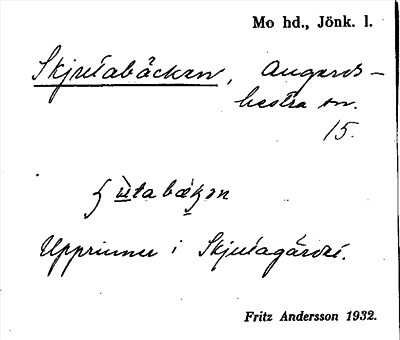 Mo hd., Jönk. l.
Skjutabäcken, Angerds-
hestra sn.
15.
ʃùtabækən
Upprinner i Skjutagärdet.
Fritz Andersson 1932.